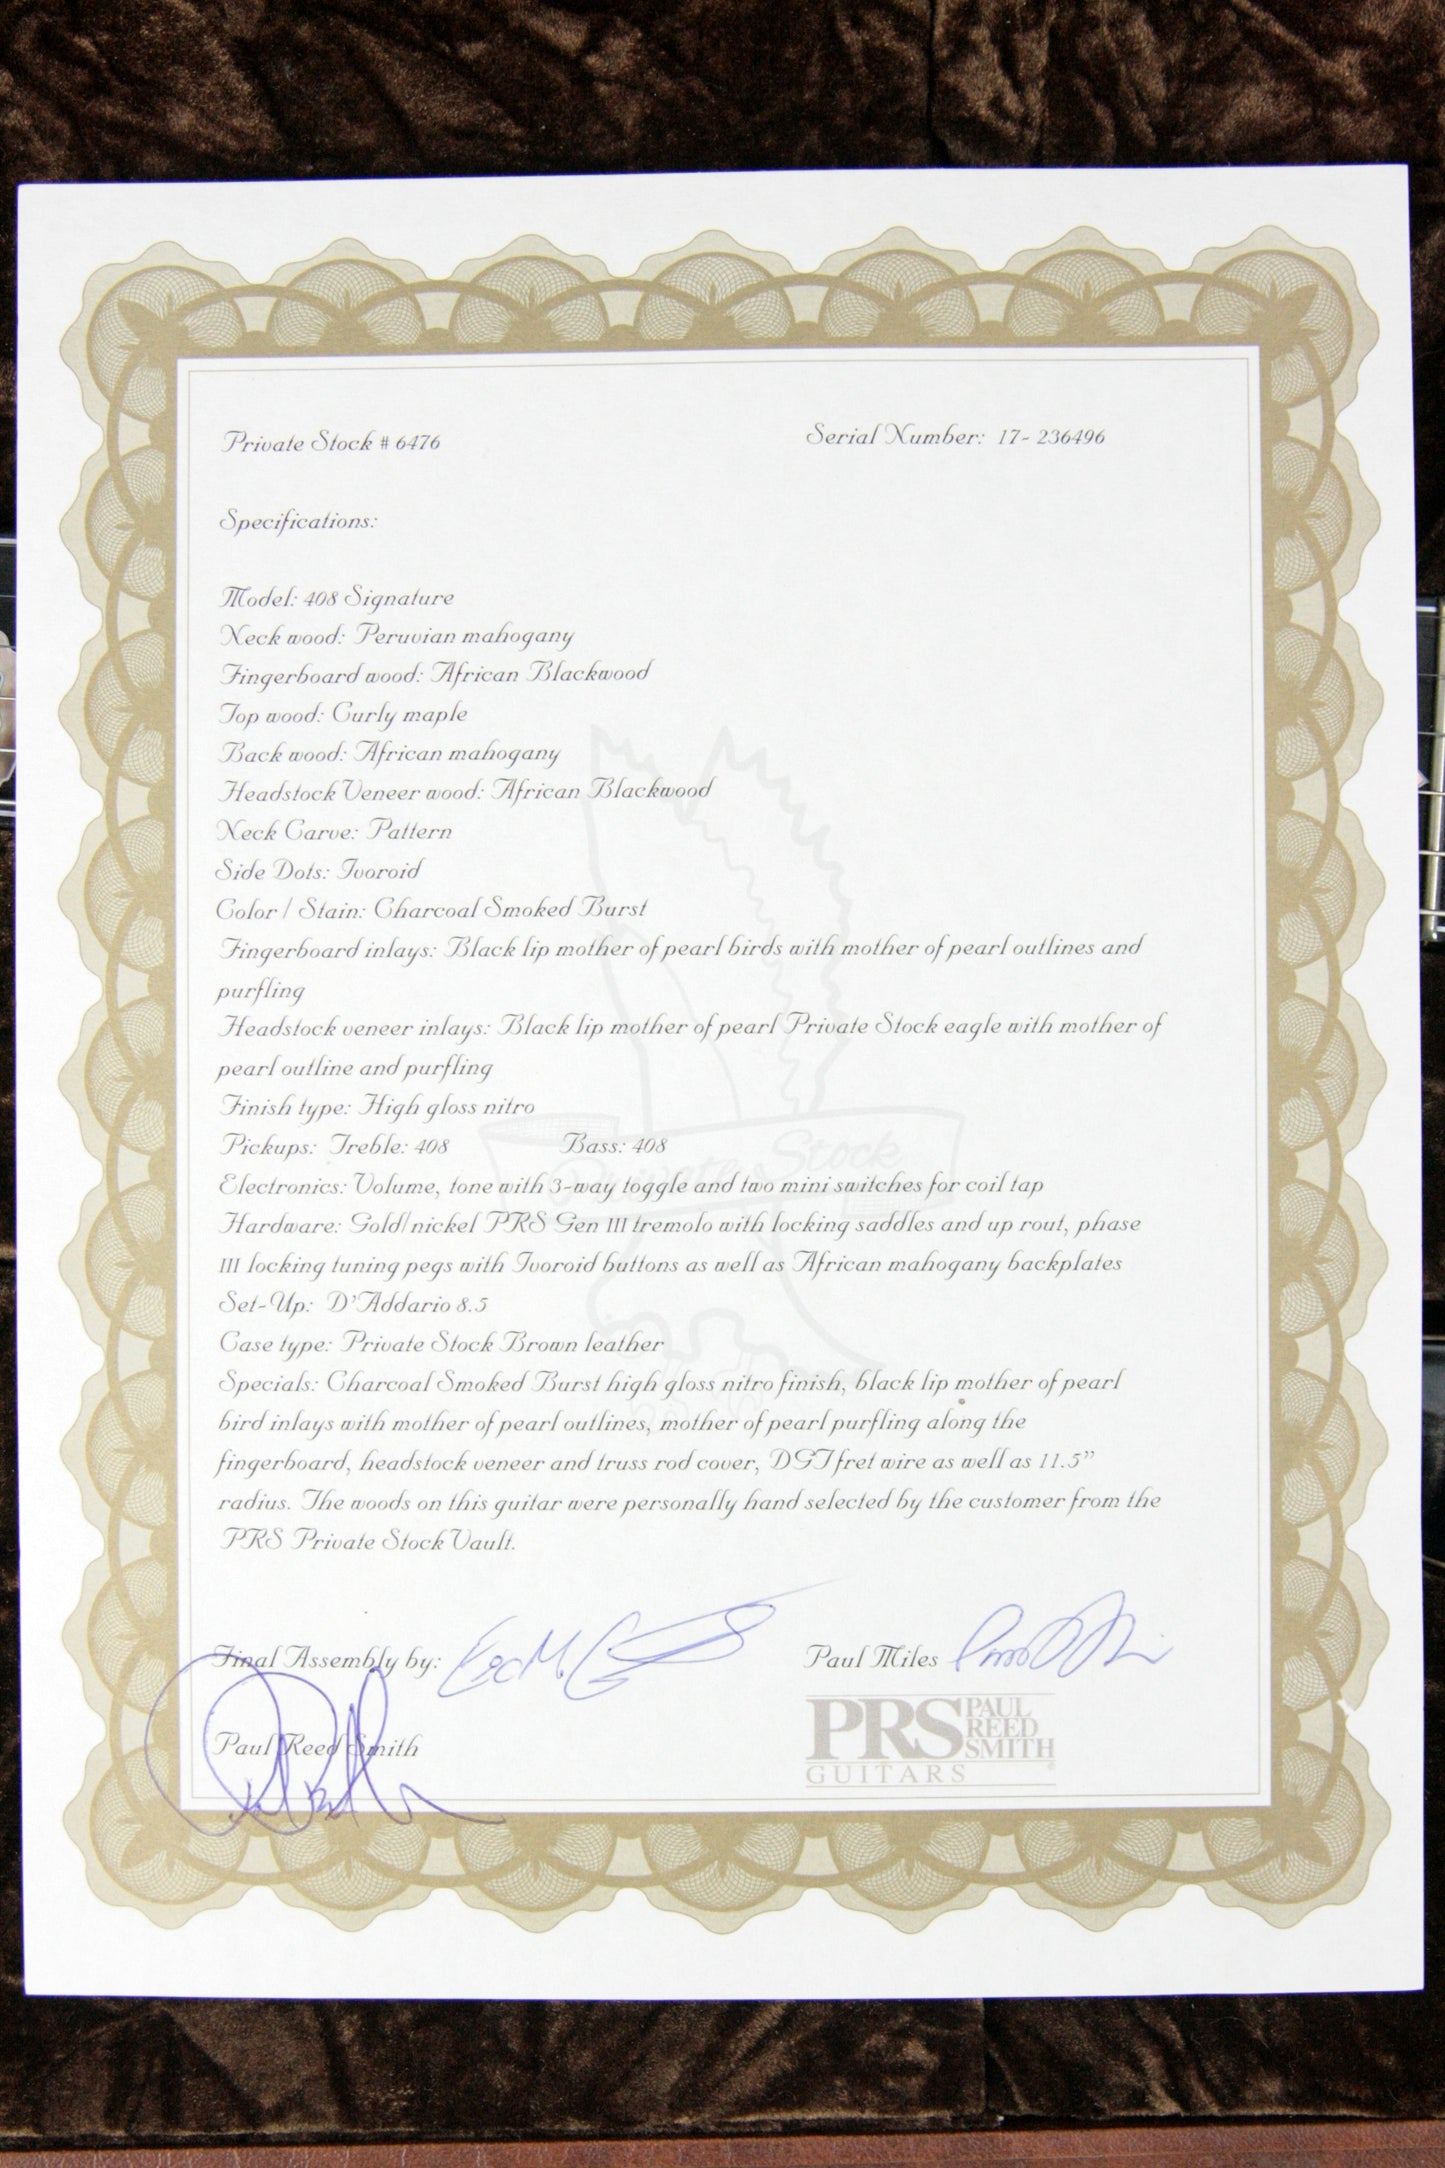 Private Stock # 6476
Serial Number: 17- 236496
Specifications:
Model: 408 Signature
Neck wood: Peruvian mahogany
Fingerboard wood: African Blackwood
Top wood: Curly maple
Back wood: African mahogany
Headstock Veneer wood: African Blackwood
Neck Carve: Pattern
Side Dots: Ivoroid
Color / Stain: Charcoal Smoked Burst
Fingerboard inlays: Black lip mother of pearl birds with mother of pearl outlines and
purfling
Headstock veneer inlays: Black lip mother of pearl Private Stock eagle with mother of
pearl outline and purfling
Finish type: High gloss nitro
Pickups: Treble: 408 Bass: 408
Private Stock
Electronics: Volume, tone with 3-way toggle and two mini switches for coil tap
Hardware: Gold/nickel PRS Gen III tremolo with locking saddles and up rout, phase
III locking tuning pegs with Ivoroid buttons as well as African mahogany backplates
Set-Up: D'Addario 8.5
Case type: Private Stock Brown leather
Specials: Charcoal Smoked Burst high gloss nitro finish, black lip mother of pearl
bird inlays with mother of pearl outlines, mother of pearl purfling along the
fingerboard, headstock veneer and truss rod cover, DGT fret wire as well as 11.5"
radius. The woods on this guitar were personally hand selected by the customer from the
PRS Private Stock Vault.
Final Assembly by:
Paul Miles
Paul Reed Smith
PRS PAUL
REED
SMITH
GUITARS